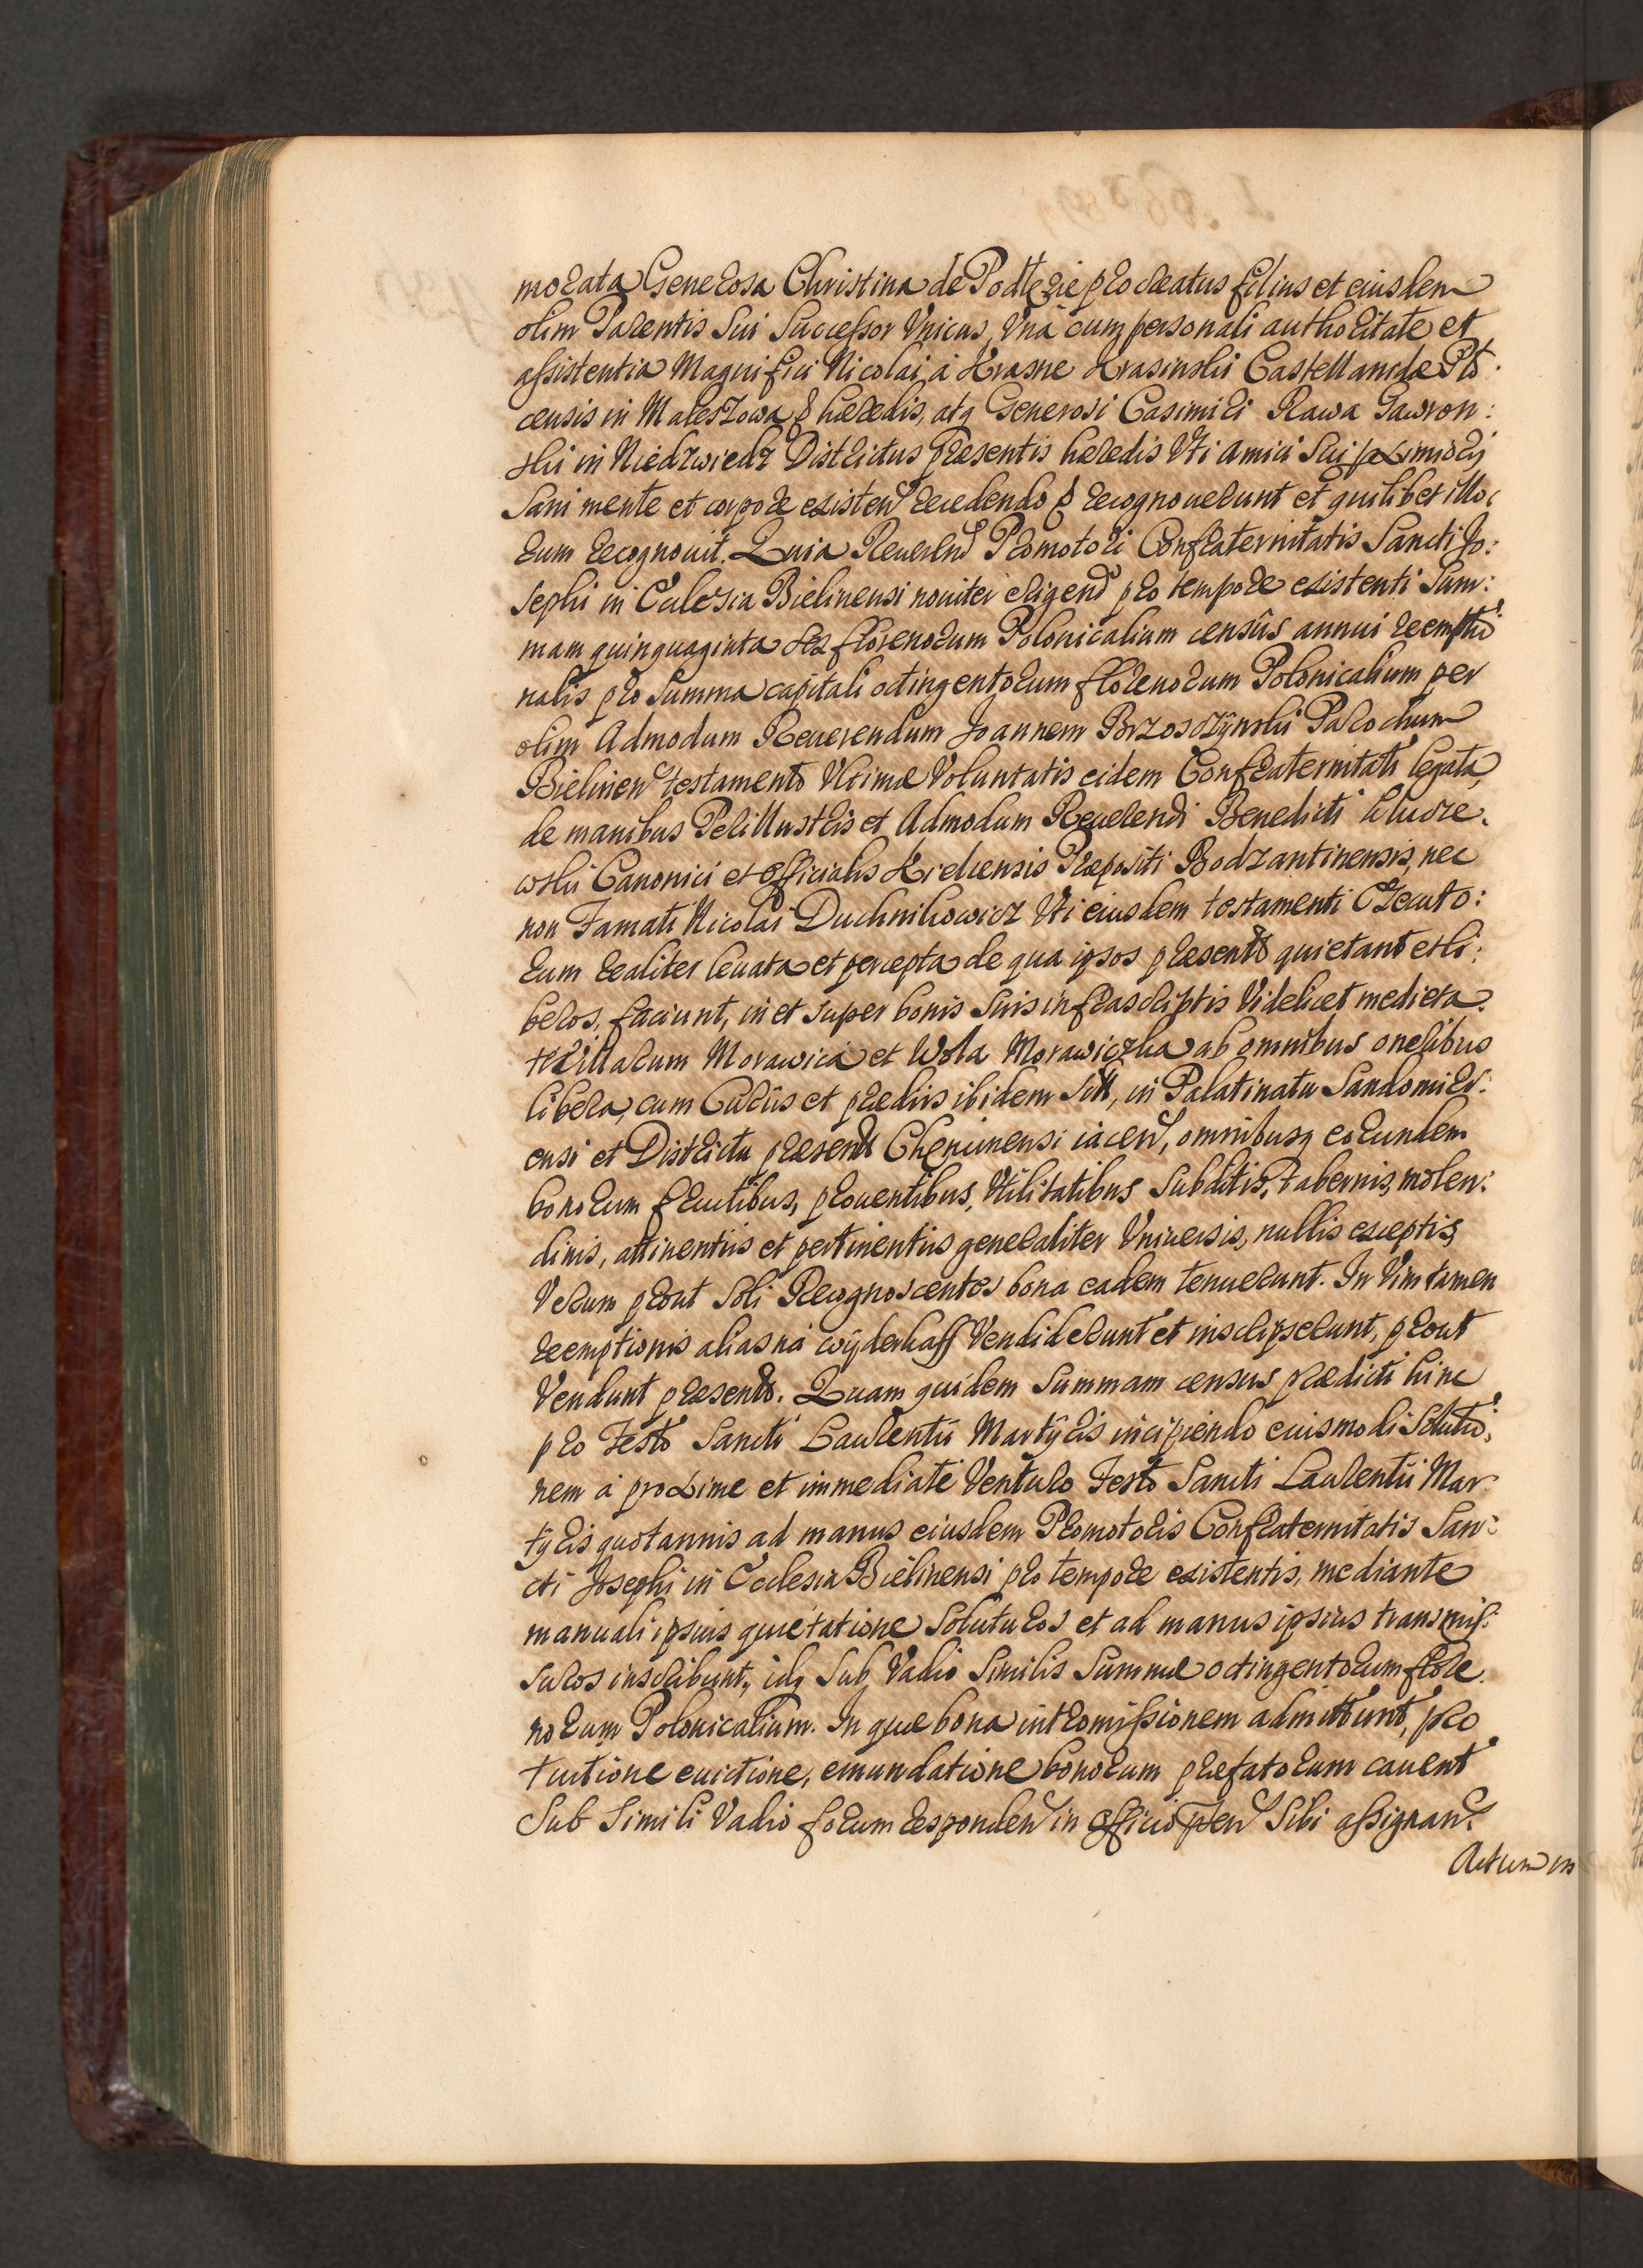 morata Generosa Christina de Podłęzie procreatus filius et eiusdem
olim Parentis Sui Successor Vnicus, Vná cum personali authoritate et
assistentia Magnifici Nicolai á Krasne Krasinski Castellanidæ Plo:
censis in Maleszowa & hæredis, atq Generosi Casimiri Rawa Gawron:
ski in Niedzwiedz Districtus præsentis hæredis Vti amici Sui
Sani mente et corpore existen recedendo & recognouerunt et quilibet illo:
rum recognouit. Quia Reuerend Promotori Confraternitatis Sancti Jo:
sephi in Eclesia Bielinensi nouiter erigend pro tempore existenti Sum:
mam quinquaginta sex florenorum Polonicalium censûs annui reemptio
nalis pro Summa capitali octingentorum florenorum Polonicalium per
olim Admodum Reuerendum Joannem Brzosczÿnski Parochum
Bielinen testamento Vltimæ Voluntatis eidem Confraternitati legata,
de manibus Perillustris et Admodum Reuerendi Benedicti
wski Canonici et officialis Kielcensis Præpositi Bodzantinensis, nec
non Famati Nicolai Duchnikowicz Vti eiusdem testamenti Executo:
rum realiter leuata et percepta de qua ipsos præsentb quietant et li:
beros, faciunt, in et super bonis Suis infrascriptis Videlicet medieta
te Villarum Morawica et Wola Morawiczka ab omnibus oneribus
libera, cum Curiis et prædiis ibidem Sitt, in Palatinatu Sandomier:
ensi et Districtu præsenti Chencinensi iacen, omnibusq eorundem
bonorum fructibus, prouentibus, Vtilitatibus Subditis, tabernis, molen:
dinis, attinentiis et pertinentiis generaliter Vniuersis, nullis exceptis,
Verum prout Soli Recognoscentes bona eadem tenuerunt. In Vim tamen
reemptionis alias ná wÿderkaff Vendiderunt et inscripserunt, prout
Vendunt præsentb. Quam quidem Summam census prædicti hinc
pro Festo Sancti Laurentii Martÿris incipiendo eiusmodi Solutio:
nem á proxime et immediaté Venturo Festo Sancti Laurentii Mar
tÿris quotannis ad manus eiusdem Promotoris Confraternitatis San:
cti Josephi in Ecclesia Bielinensi pro tempore existentis, mediante
manuali ipsius quietatione Soluturos et ad manus ipsius transmis:
suros inscribunt, idq Sub Vadio Similis Summæ octingentorum flore
norum Polonicalium. In quæ bona intromissionem admittunt, pro
tuitione euictione, emundatione bonorum præfatorum cauent
Sub Simili Vadio forum responden in officio pñen Sibi assignan
Actum in